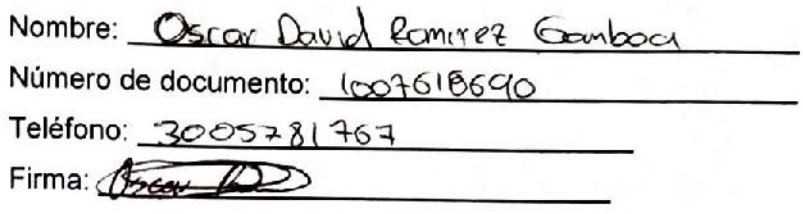 Nombre: Oscar David Ramirez Gamboa
Número de documento: 1007618690
Teléfono: 3005781767
Firma: Oscar